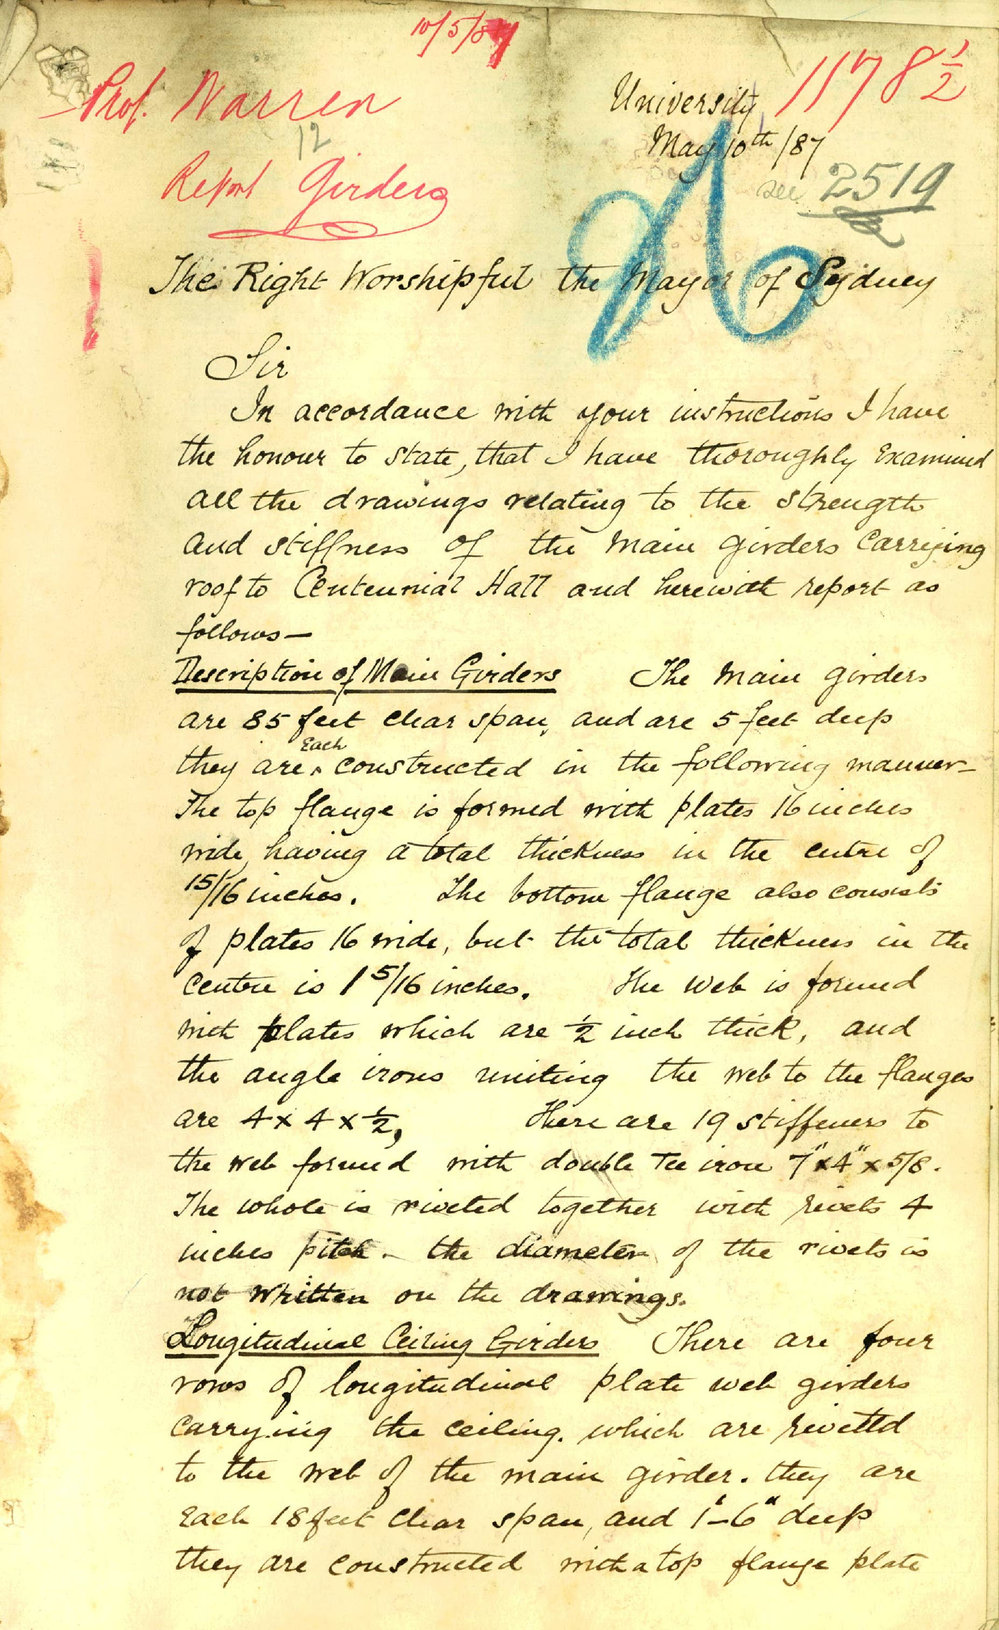 10/5/87
Prof. Warren
12
Report Girders
1178 1/2
University
May 10th /87
see 2519
The Right Worshipful the Mayor of Sydney
Sir
In accordance with your instructions I have
the honour to state, that I have thoroughly Examined
all the drawings relating to the strength
and stiffness of the main girders carrying
roof to Centennial Hall and herewith report as
follows—
Description of Main Girders The main girders
are 85 feet clear span, and are 5 feet deep
they are Each constructed in the following manner—
The top flange is formed with plates 16 inches
wide, having a total thickness in the centre of
15/16 inches. The bottom flange also consists
of plates 16 wide, but the total thickness in the
centre is 1 5/16 inches. The web is formed
with plates which are 1/2 inch thick, and
the angle irons uniting the web to the flanges
are 4 x 4 x 1/2, There are 19 stiffeners to
the web formed with double Tee iron 7" x 4" x 5/8.
The whole is riveted together with rivets 4
inches pitch - the diameter of the rivets is
not written on the drawings.
Longitudinal Ceiling Girders There are four
rows of longitudinal plate web girders
carrying the ceiling. which are rivetted
to the web of the main girder. they are
Each 18 feet clear span, and 1'-6" deep
they are constructed with a top flange plate